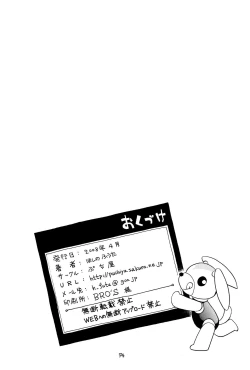 おくづけ
発行日：2008年4月
著者：ほしのふうた
サークル：ぷち屋
URL：http://puchiya.sakura.ne.jp
メール先：h_futa@goo.jp
印刷所：BRO'S 様
無断転載禁止
WEBへの無断アップロード禁止